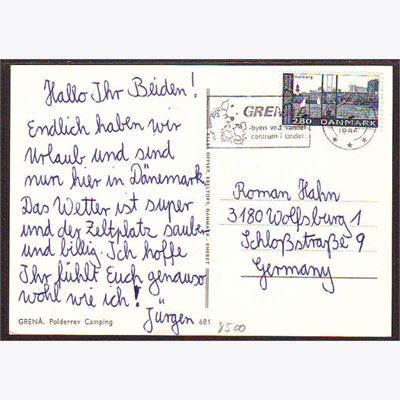 Hallo Ihr Beiden!
Endlich haben wir
Urlaub und sind
nun hier in Dänemark
Das Wetter ist super
und der Zeltplatz sauber
und billig. Ich hoffe
Ihr fühlt Euch genauso
wohl wie ich!
Jürgen
GRENÅ. Polderrev Camping
681
8500
GRENÅ
-byen ved vandet
centrum i landet
Aalborg
280 DANMARK
1986
Roman Hahn
3180 Wolfsburg 1
Schloßstraße 9
Germany